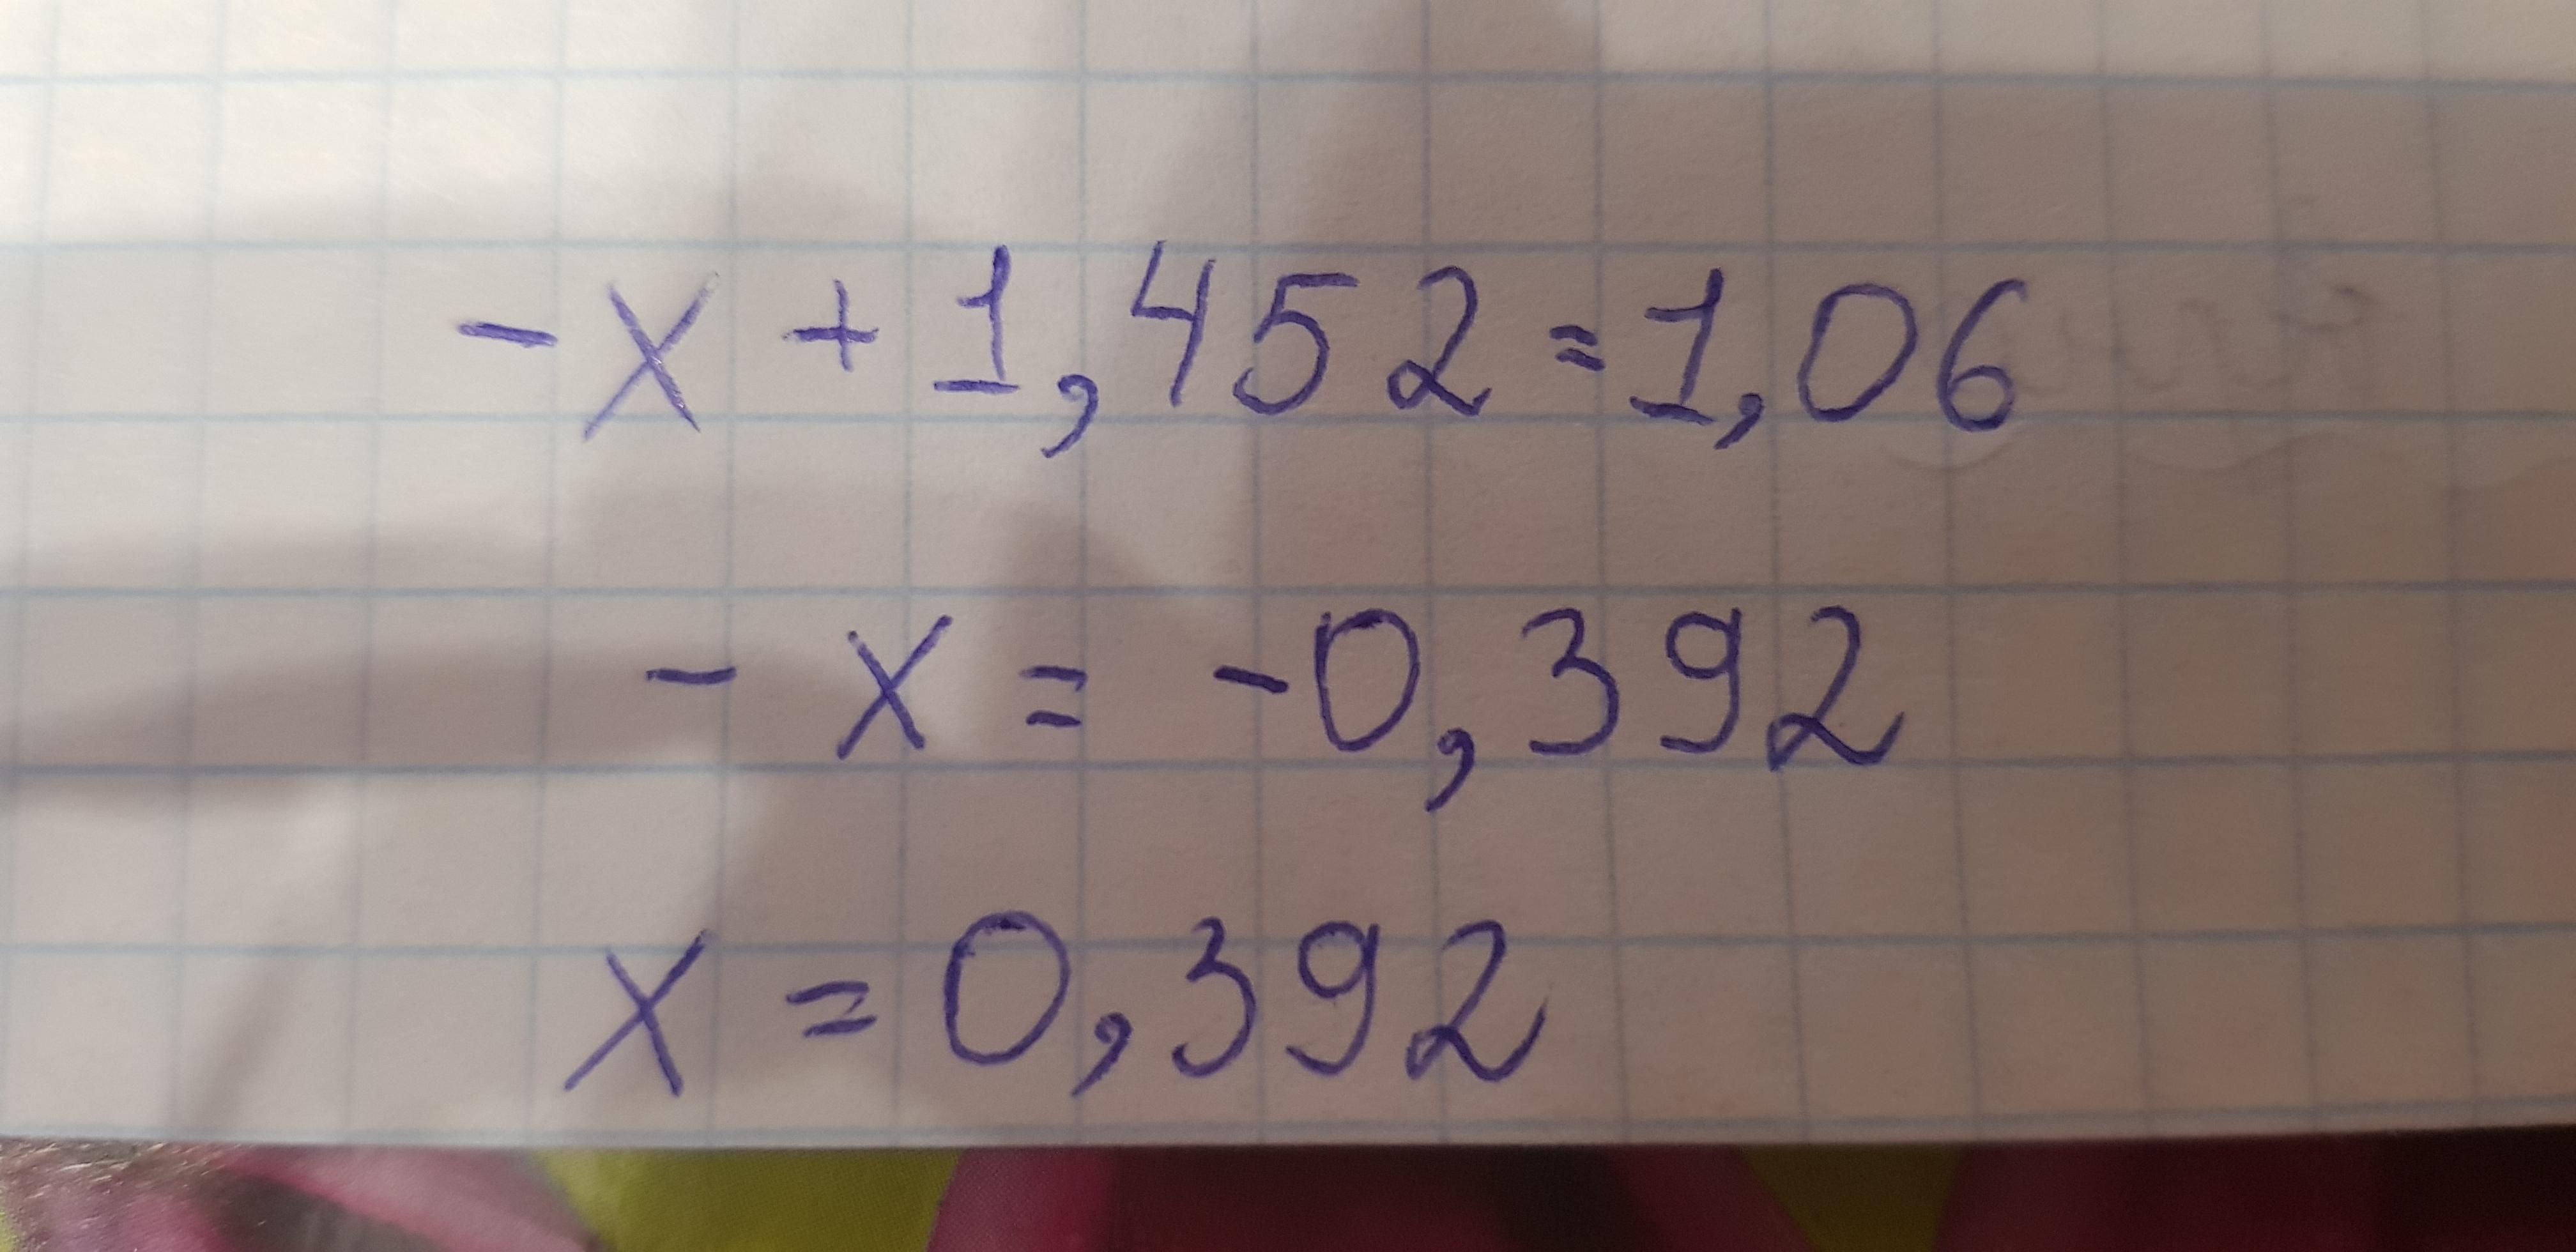 -x + 1,452 = 1,06
- x = -0,392
x = 0,392